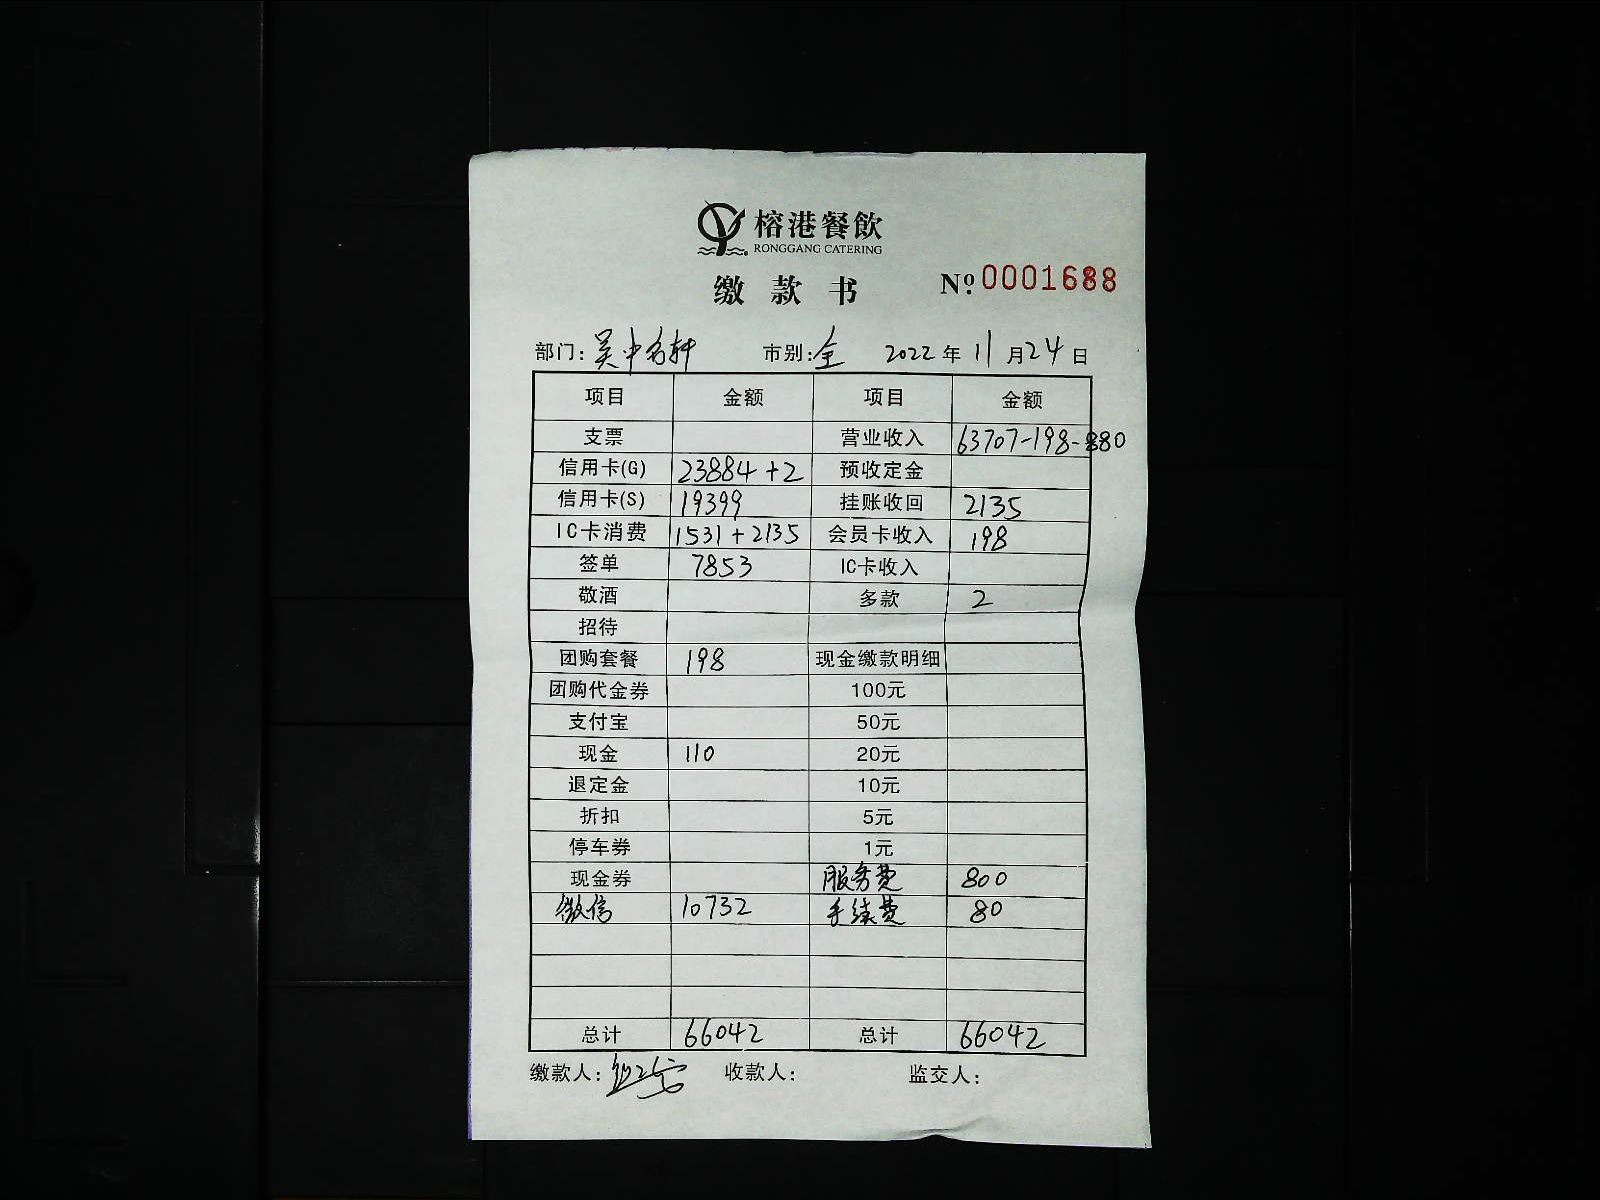 榕港餐飲
RONGGANG CATERING
缴款书 Nº 0001688
部门: 吴中名轩 市别: 全 2022 年 11 月 24 日
项目 金额 项目 金额
支票 营业收入 63707-198-880
信用卡(G) 23884+2 预收定金
信用卡(S) 19399 挂账收回 2135
IC卡消费 1531+2135 会员卡收入 198
签单 7853 IC卡收入
敬酒 多款 2
招待
团购套餐 198 现金缴款明细
团购代金券 100元
支付宝 50元
现金 110 20元
退定金 10元
折扣 5元
停车券 1元
现金券 服务费 800
微信 10732 手续费 80
总计 66042 总计 66042
缴款人: 收款人: 监交人: